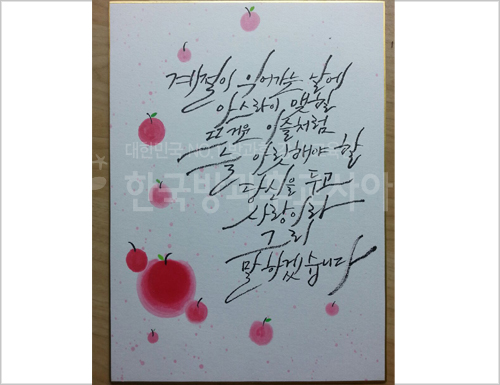 계절이 익어가는 날에
아스라이 맺힐
뜨거운 이슬처럼
늘 애틋해야 할
당신을 두고
사랑이라
그리
말하겠습니다
대한민국
한국방과후교사아